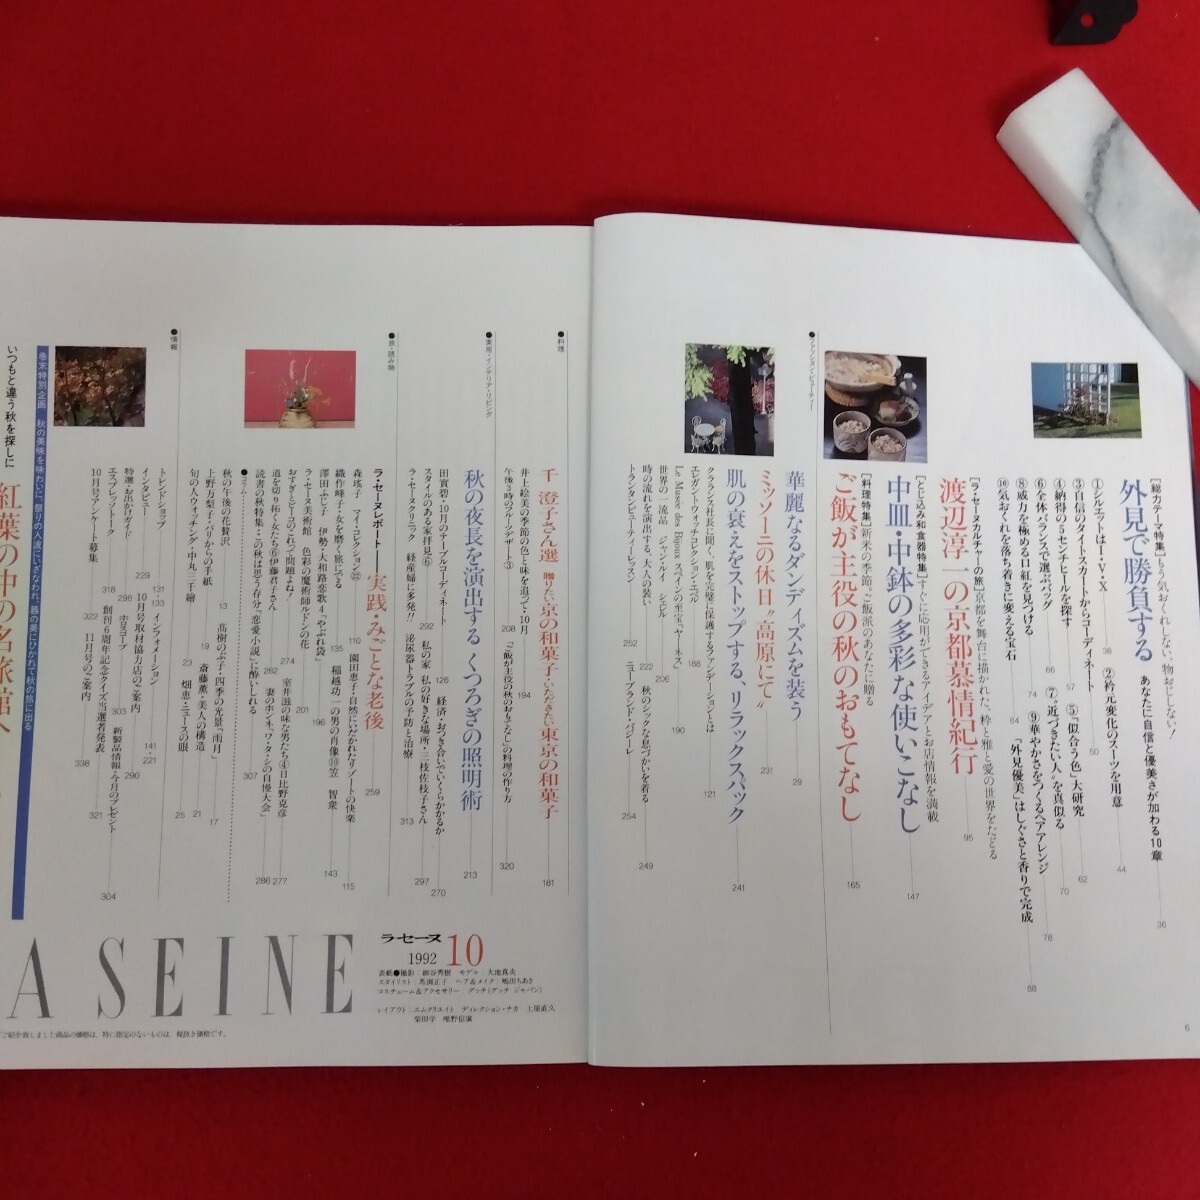 [総力テーマ特集]もう気おくれしない、物おじしない!
外見で勝負する あなたに自信と優美さが加わる10章
36
①シルエットはI・V・X
38
②衿元変化のスーツを用意
44
③自信のタイトスカートからコーディネート
50
④納得の5センチヒールを探す
57
⑤「似合う色」大研究
62
⑥全体バランスで選ぶバッグ
66
⑦"近づきたい人"を真似る
70
⑧威力を極める口紅を見つける
74
⑨華やかさをつくるヘアアレンジ
78
⑩気おくれを落ち着きに変える宝石
84
「外見優美」はしぐさと香りで完成
88
[ラ・セーヌカルチャーの旅]京都を舞台に描かれた、粋と雅と愛の世界をたどる
渡辺淳一の京都慕情紀行
95
[とじ込み和食器特集]すぐに応用ができるアイデアとお店情報を満載
中皿・中鉢の多彩な使いこなし
147
[料理特集]新米の季節。ご飯派のあなたに贈る
ご飯が主役の秋のおもてなし
165
●ファッション・ビューティー
華麗なるダンディズムを装う
29
ミッソーニの休日"高原にて"
231
肌の衰えをストップする、リラックスパック
241
クラランス社長に聞く。肌を完璧に保護するファンデーションとは
121
エレガント・ウォッチコレクション・エベル
206
Le Musée des Bijoux スペインの至宝"ヤーネス"
190
世界の一流品 ジャンル・イ シェビル
222
秋のシックな息づかいを着る
249
時の流れを演出する、大人の装い
252
ニューブランド・パジーレ
254
トランタンビューティーレッスン
●料理
千 澄子さん選 贈りたい京の和菓子・いただきたい東京の和菓子
181
井上絵美の季節の色と味を追って・10月
194
午後3時のフルーツデザート③
208
「ご飯が主役の秋のおもてなし」の料理の作り方
320
●実用・インテリア・リビング
秋の夜長を演出する くつろぎの照明術
213
田賓碧・10月のテーブルコーディネート
126
経済・おつき合いでいくらかかるか
270
スタイルのある家拝見⑥
292
私の家 私の好きな場所・三枝佐枝子さん
297
ラ・セーヌクリニック 経産婦に多発!! 泌尿器トラブルの予防と治療
313
●旅・読み物
ラ・セーヌレポート——実践・みごとな老後
259
森瑤子 マイ・コレクション㉒
110
園田恵子・自然にいだかれたリゾートの快楽
115
織作峰子・女を磨く旅にでる
135
稲越功一の男の肖像⑩笠 智衆
143
澤田ふじ子 伊勢・大和路恋歌4「やぶれ袋」
196
ラ・セーヌ美術館 色彩の魔術師ルドンの花
201
おすぎとピーコのこれって問題よね!
274
室井滋の味な男たち④日比野克彦
277
道を切り拓く女たち⑥伊藤君子さん
282
妻のホンネ「ワ・タ・シの自慢大会」
286
読書の秋特集・この秋は思う存分「恋愛小説」に酔いしれる
307
●コラム
秋の午後の花贅沢
13
髙樹のぶ子・四季の光景「雨月」
17
上野万梨子・パリからの手紙
19
斎藤薫・美人の構造
21
旬の人ウォッチング・中丸三千繪
23
畑恵・ニュースの眼
25
●情報
トレンドショップ
131・133
インフォメーション
141・221
インタビュー
229
10月号取材協力店のご案内
290
特選・お出かけガイド
296
ホロスコープ
303
新製品情報・今月のプレゼント
304
エスプレッソトーク
318
創刊6周年記念クイズ当選者発表
321
10月号アンケート募集
322
11月号のご案内
338
巻末特別企画 秋の美味を味わいに、祭りの人波にいざなわれ、器の美にひかれて秋の旅に出る
いつもと違う秋を探しに
紅葉の中の名旅館へ
A SEINE
ラ・セーヌ
1992 10
表紙●撮影/細谷秀樹 モデル/大地真央
スタイリスト/馬渕正子 ヘア&メイク/嶋田ちあき
コスチューム&アクセサリー/グッチ(グッチ ジャパン)
レイアウト/エムクリエイト ディレクション・ナカ 土屋直久
柴田学 唯野信廣
ご紹介致しました商品の価格は、特に指定のないものは、税抜き価格です。
6